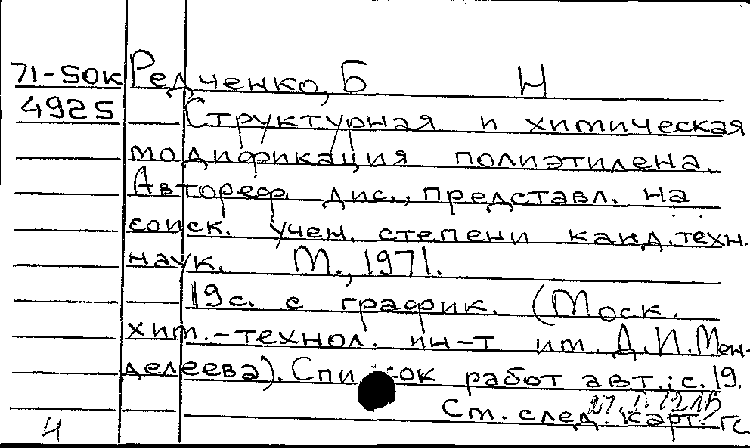 71-50к Редченко, Б Н
4925 Структурная и химическая
модификация полиэтилена.
Автореф. дис., представл. на
соиск. учен. степени канд. техн.
наук. М., 1971.
19 с. с график. (Моск.
хим.-технол. ин-т им. Д.И. Мен-
делеева). Список работ авт.: с. 19.
См. след. карт.
Ч